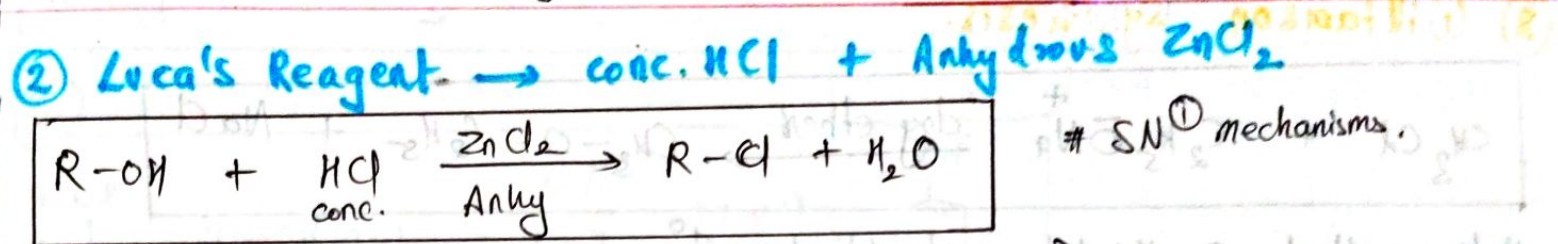 ② Luca's Reagent. → conc. HCl + Anhydrous ZnCl₂
R-OH + HCl conc. —ZnCl₂ Anhy→ R-Cl + H₂O
# SN① mechanisms.